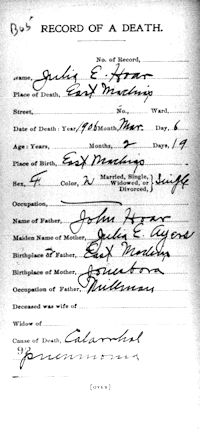 B65
RECORD OF A DEATH.
No. of Record,
Name, Julia E. Hoar
Place of Death, East Machias
Street, No., Ward,
Date of Death: Year, 1906 Month, Mar. Day, 6
Age: Years, Months, 2 Days, 19
Place of Birth, East Machias
Sex, F Color, W Married, Single, Widowed, or Divorced, } Single
Occupation,
Name of Father, John Hoar
Maiden Name of Mother, Julia E. Ayers
Birthplace of Father, East Machias
Birthplace of Mother, Jonesboro
Occupation of Father,
Deceased was wife of
Widow of
Cause of Death, Catarrhal
92 pneumonia
(OVER)